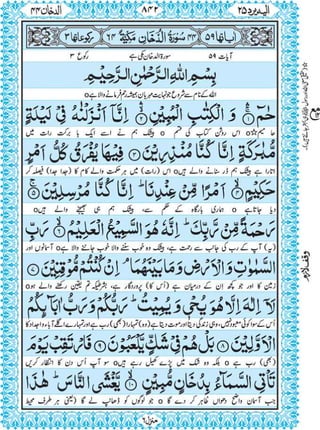 الدخان ٤٤
٨٤٢
الیہ یرد ٢٥
اٰیاتها ٥٩
٤٤ سُوْرَةُ الدُّخَانِ مَكِّيَّةٌ ٦٤
رکوعاتها ٣
آیات ٥٩ سورۃ الدخان مکی ہے رکوع ٣
بِسْمِ اللّٰهِ الرَّحْمٰنِ الرَّحِيْمِ
اللہ کے نام سے شروع جو نہایت مہربان ہمیشہ رحم فرمانے والا ہے
حٰمٓ ۝١ وَ الْكِتٰبِ الْمُبِيْنِ ۝٢ اِنَّاۤ اَنْزَلْنٰهُ فِيْ لَيْلَةٍ
حا میم اس روشن کتاب کی قسم بیشک ہم نے اسے ایک با برکت رات میں
مُّبٰرَكَةٍ اِنَّا كُنَّا مُنْذِرِيْنَ ۝٣ فِيْهَا يُفْرَقُ كُلُّ اَمْرٍ
اتارا ہے بیشک ہم ڈر سنانے والے ہیں اس (رات) میں ہر حکمت والے کام کا (جدا جدا) فیصلہ کر
حَكِيْمٍ ۝٤ اَمْرًا مِّنْ عِنْدِنَا ؕ اِنَّا كُنَّا مُرْسِلِيْنَ ۝٥
دیا جاتا ہے ہماری بارگاہ کے حکم سے، بیشک ہم ہی بھیجنے والے ہیں
رَحْمَةً مِّنْ رَّبِّكَ ؕ اِنَّهٗ هُوَ السَّمِيْعُ الْعَلِيْمُ ۝٦ رَبِّ
(یہ) آپ کے رب کی جانب سے رحمت ہے، بیشک وہ خوب سننے والا خوب جاننے والا ہے آسمانوں اور
السَّمٰوٰتِ وَ الْاَرْضِ وَ مَا بَيْنَهُمَا ۘ اِنْ كُنْتُمْ مُّوْقِنِيْنَ ۝٧
زمین کا اور جو کچھ ان کے درمیان ہے (اس کا) پروردگار ہے، بشرطیکہ تم یقین رکھنے والے ہو
لَاۤ اِلٰهَ اِلَّا هُوَ يُحْيٖ وَ يُمِيْتُ ؕ رَبُّكُمْ وَ رَبُّ اٰبَآئِكُمُ
اس کے سوا کوئی معبود نہیں، وہی زندگی دیتا اور موت دیتا ہے (وہ) تمہارا (بھی) رب ہے اور تمہارے اگلے آباء و اجداد کا
الْاَوَّلِيْنَ ۝٨ بَلْ هُمْ فِيْ شَكٍّ يَّلْعَبُوْنَ ۝٩ فَارْتَقِبْ يَوْمَ
(بھی) رب ہے بلکہ وہ شک میں پڑے کھیل رہے ہیں سو آپ اُس دن کا انتظار کریں
تَاْتِي السَّمَآءُ بِدُخَانٍ مُّبِيْنٍ ۝١٠ يَّغْشَى النَّاسَ ؕ هٰذَا
جب آسمان واضح دھواں ظاہر کر دے گا جو لوگوں کو ڈھانپ لے گا (یعنی ہر طرف محیط
وقف لازم
منزل ٦